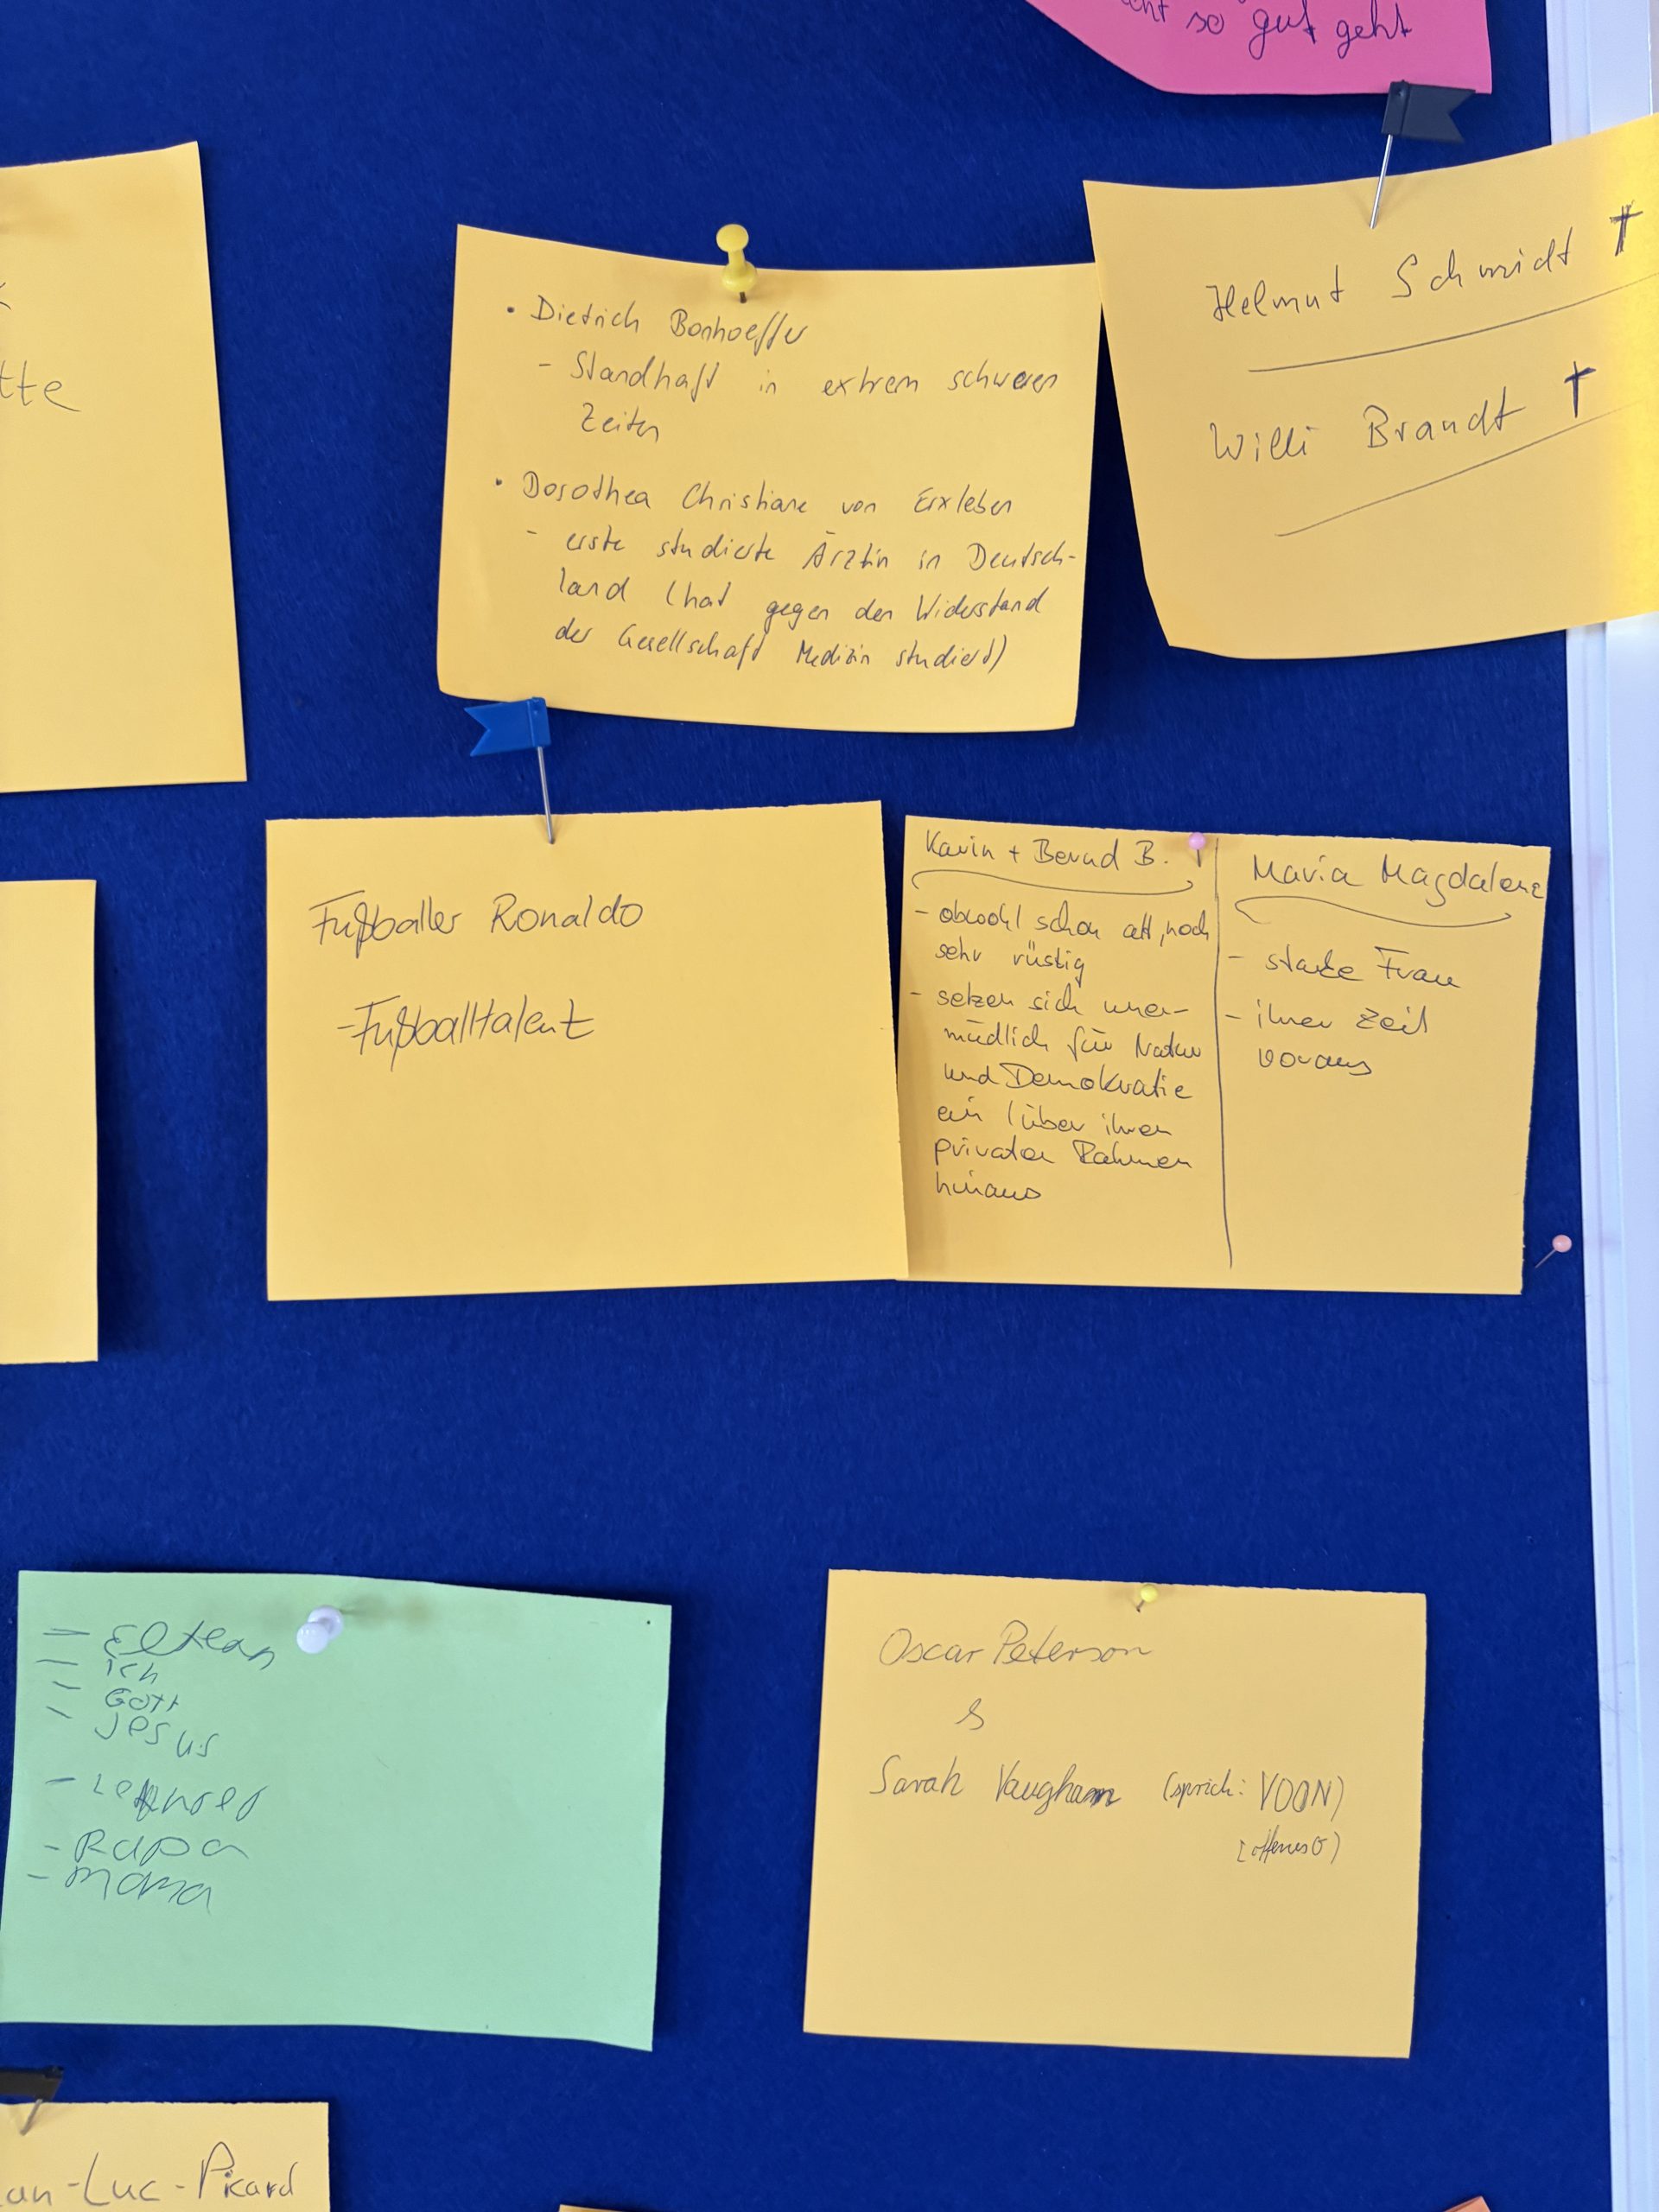 so gut geht
tte
Helmut Schmidt †
Willi Brandt †
• Dietrich Bonhoeffer
- Standhaft in extrem schweren
Zeiten
• Dorothea Christiane von Erxleben
- erste studierte Ärztin in Deutsch-
land (hat gegen den Widerstand
der Gesellschaft Medizin studiert)
Fußballer Ronaldo
-Fußballtalent
Karin + Bernd B.
- obwohl schon alt, noch
sehr rüstig
- setzen sich uner-
müdlich für Natur
und Demokratie
ein (über ihren
privaten Rahmen
hinaus
Maria Magdalena
- starke Frau
- ihrer Zeit
voraus
- Eltern
- ich
- Gott
- Jesus
- Papa
- mama
Oscar Peterson
&
Sarah Vaughan (sprich: VOON)
(offenes O)
an-Luc-Picard